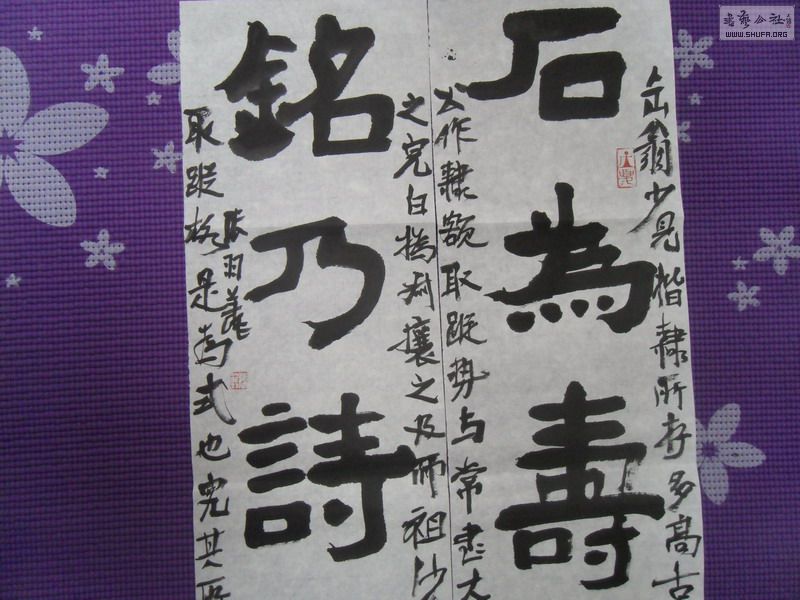 石為壽
銘乃詩
缶翁少見楷隸所存多高古
作隸額取蹤勢与常書大
之完白撝叔攘之及師祖沙
取蹤於是為式也究其所
張羽義
書藝公社
WWW.SHUFA.ORG